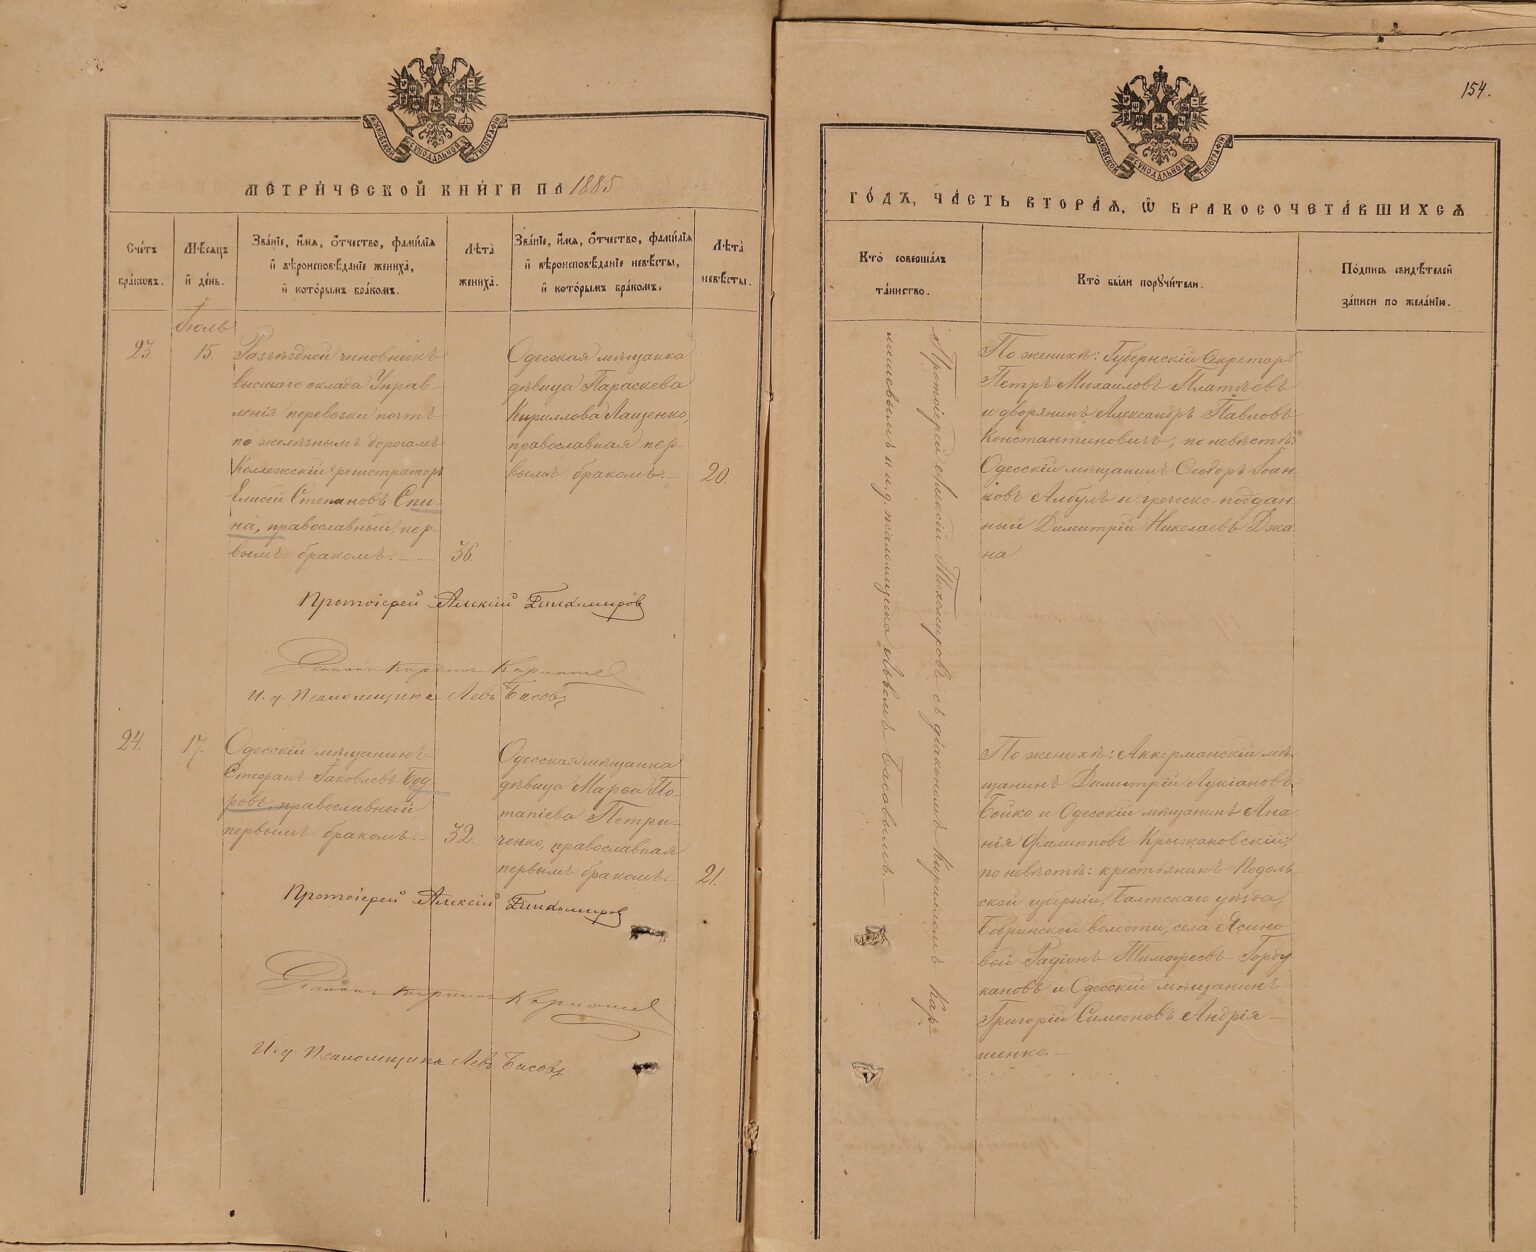 МЕТРИЧЕСКОЙ КНИГИ НА 1885
Счетъ браковъ.
Мѣсяцъ и день.
Званіе, имя, отчество, фамилія и вѣроисповѣданіе жениха, и которымъ бракомъ.
Лѣта жениха.
Званіе, имя, отчество, фамилія и вѣроисповѣданіе невѣсты, и которымъ бракомъ.
Лѣта невѣсты.
Іюль
23.
15.
Разъѣздной чиновникъ
высшаго оклада Управ-
ленія перевозки почтъ
по желѣзнымъ дорогамъ
Коллежскій регистраторъ
Елисей Степановъ Спи-
на, православный, пер-
вымъ бракомъ.
36.
Одесская мѣщанка
дѣвица Параскева
Кириллова Лащенко,
православная пер-
вымъ бракомъ.
20.
Протоіерей Алексій Тихомировъ
Діаконъ Кириллъ
И. д. Псаломщика Левъ Басовъ
24.
17.
Одесскій мѣщанинъ
Стефанъ Іаковлевъ Бод-
ровъ, православный,
первымъ бракомъ.
32.
Одесская мѣщанка
дѣвица Марѳа По-
тапіева Петри-
ченко, православная
первымъ бракомъ.
21.
Протоіерей Алексій Тихомировъ
Діаконъ Кириллъ
И. д. Псаломщика Левъ Басовъ
154.
МОСКОВСКОЙ СѴНОДАЛЬНОЙ ТИПОГРАФІИ
ГОДЪ, ЧАСТЬ ВТОРАЯ, Ѡ БРАКОСОЧЕТАВШИХСЯ
Кто совершалъ таинство.
Кто были поручители.
Подпись свидѣтелей записи по желанію.
Протоіерей Алексій Тихомировъ съ діакономъ Кирилломъ Кар-
лашовымъ и и. д. псаломщика Львомъ Басовымъ.
По женихѣ: Губернскій Секретарь
Петръ Михаиловъ Платѣевъ
и дворянинъ Александръ Павловъ
Константиновичъ, по невѣстѣ:
Одесскій мѣщанинъ Ѳеодоръ Іоан-
новъ Албулъ и греческо-поддан-
ный Димитрій Николаевъ Джа
на
По женихѣ: Аккерманскій мѣ-
щанинъ Димитрій Лукіановъ
Бойко и Одесскій мѣщанинъ Ана
нія Филипповъ Крыжановскій;
по невѣстѣ: крестьянинъ Подоль
ской губерніи, Балтскаго уѣзда,
волости, села Ясино
вой Радіонъ Тимоѳеевъ Горду
кановъ и Одесскій мѣщанинъ
Григорій Симеоновъ Андрія-
шенко.